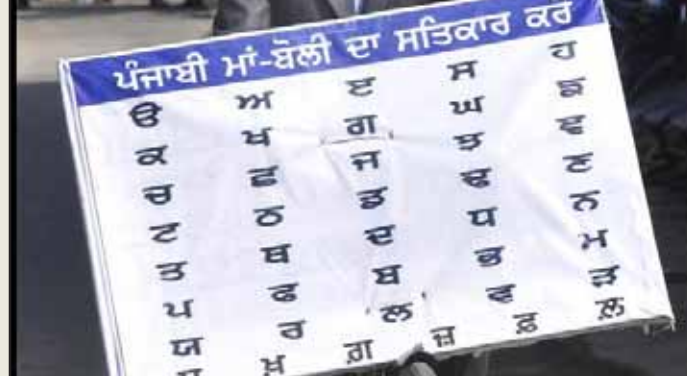 ਪੰਜਾਬੀ ਮਾਂ-ਬੋਲੀ ਦਾ ਸਤਿਕਾਰ ਕਰੋ
ੳ ਅ ੲ ਸ ਹ
ਕ ਖ ਗ ਘ ਙ
ਚ ਛ ਜ ਝ ਞ
ਟ ਠ ਡ ਢ ਣ
ਤ ਥ ਦ ਧ ਨ
ਪ ਫ ਬ ਭ ਮ
ਯ ਰ ਲ ਵ ੜ
ਖ਼ ਗ਼ ਜ਼ ਫ਼ ਲ਼